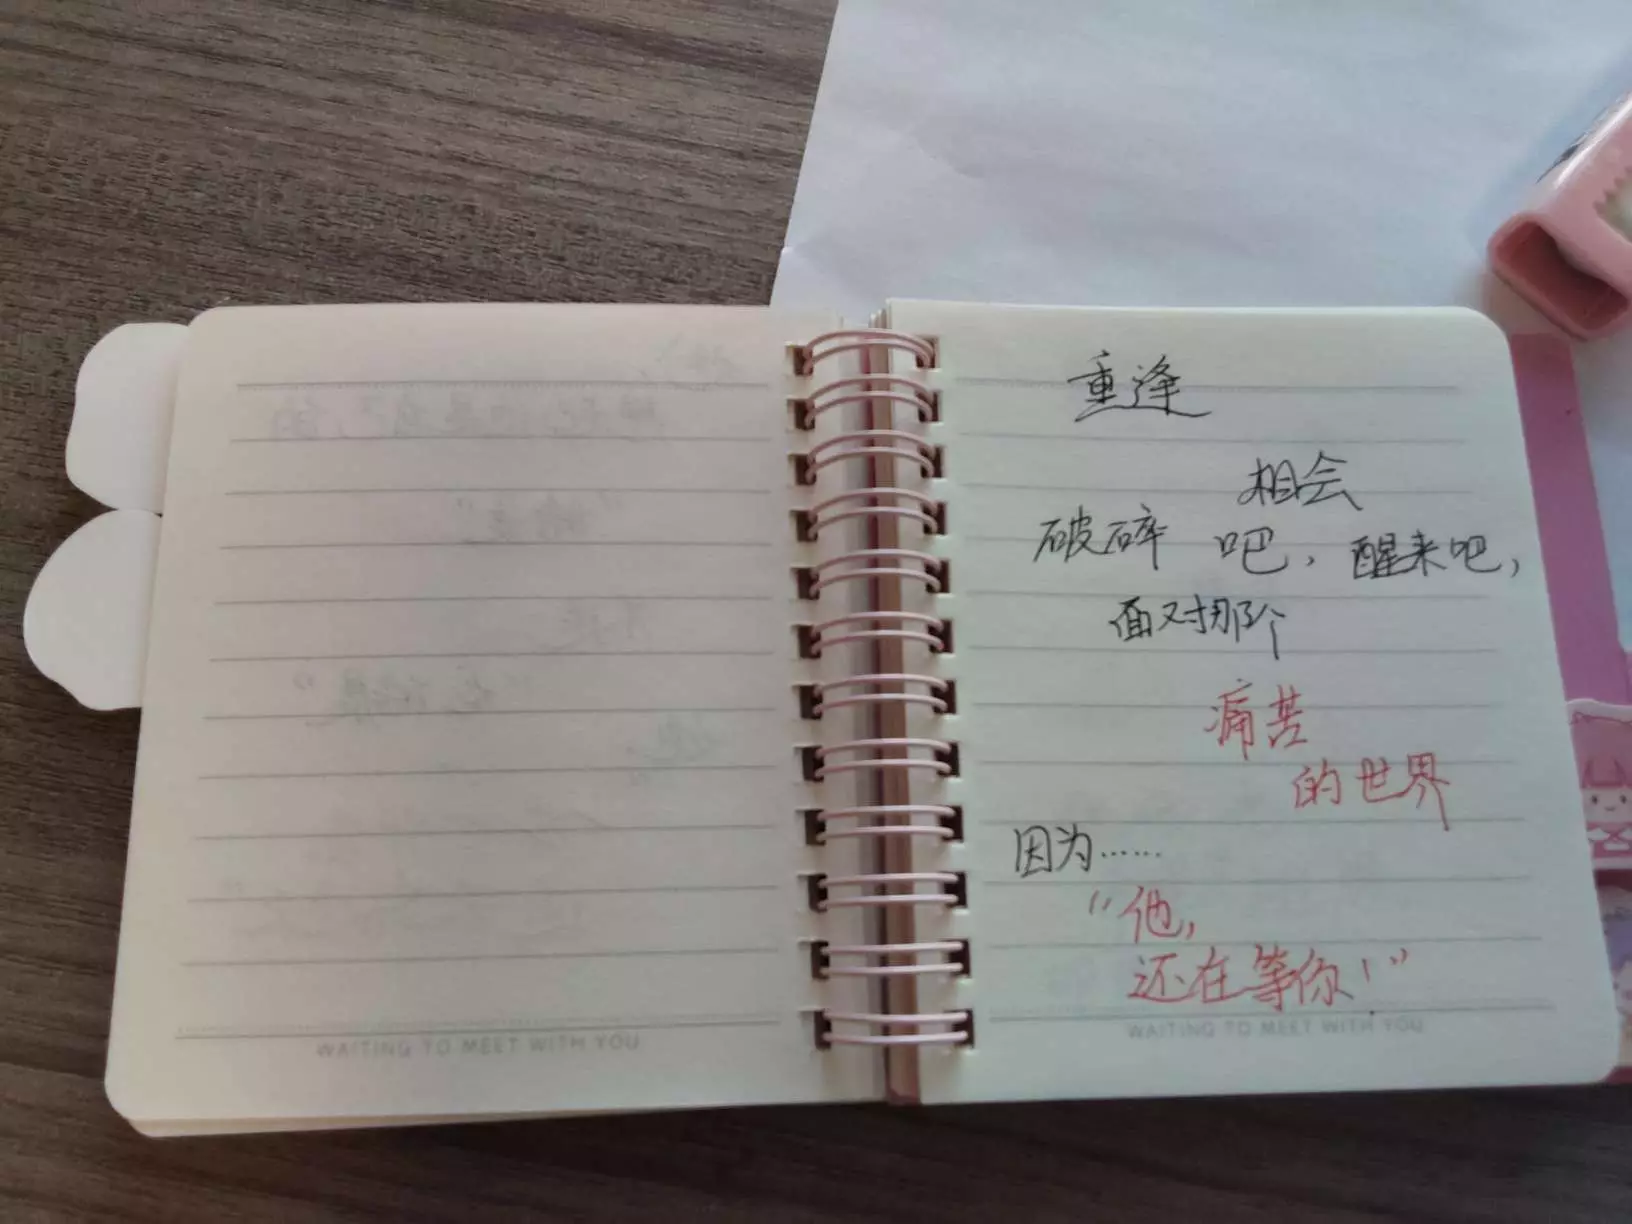 WAITING TO MEET WITH YOU
重逢
相会
破碎 吧，醒来吧，
面对那个
痛苦
的世界
因为……
“他，
还在等你！”
WAITING TO MEET WITH YOU